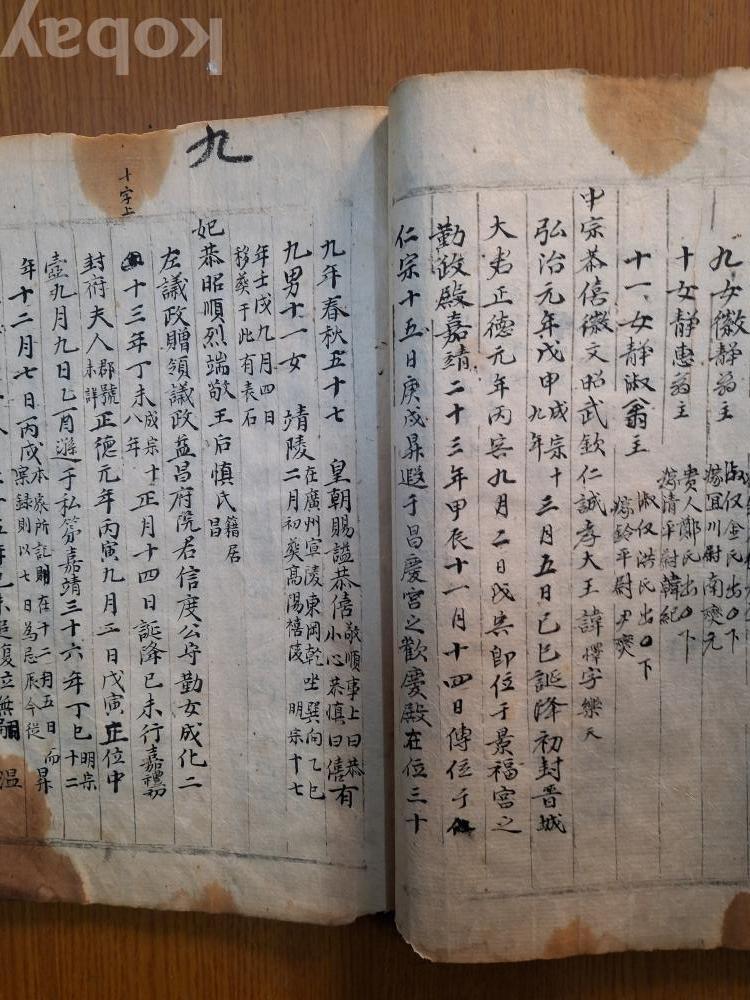 kobay
九女徽靜翁主
淑仪金氏出〇下
嫁宜川尉南燮元
十女靜惠翁主
貴人鄭氏出〇下
嫁清平尉韓紀
十一女靜淑翁主
淑仪洪氏出〇下
嫁鈴平尉尹燮
中宗恭僖徽文昭武欽仁誠孝大王諱懌字樂天
弘治元年戊申成宗十九年三月五日己巳誕降初封晋城
大君正德元年丙寅九月二日戊寅卽位于景福宮之
勤政殿嘉靖二十三年甲辰十一月十四日傳位于
仁宗十五日庚戌昇遐于昌慶宮之歡慶殿在位三十
九
十字上
九年春秋五十七 皇朝賜謚恭僖敬順事上曰恭小心恭慎曰僖有
九男十一女 靖陵在廣州宣陵東岡乾坐巽向乙巳二月初葬高陽禧陵明宗十七
年壬戌九月四日移葬于此有表石
妃恭昭順烈端敬王后慎氏籍居昌
左議政贈領議政益昌府院君信度公守勤女成化二
十三年丁未成宗十八年正月十四日誕降己未行嘉禮初
封府夫人郡號未詳正德元年丙寅九月二日戊寅正位中
壼九月九日乙酉遜于私第嘉靖三十六年丁巳明宗十二
年十二月七日丙戌本家所記則在十二月五日而昇案録則以七日為忌辰今從
復位無嗣 温